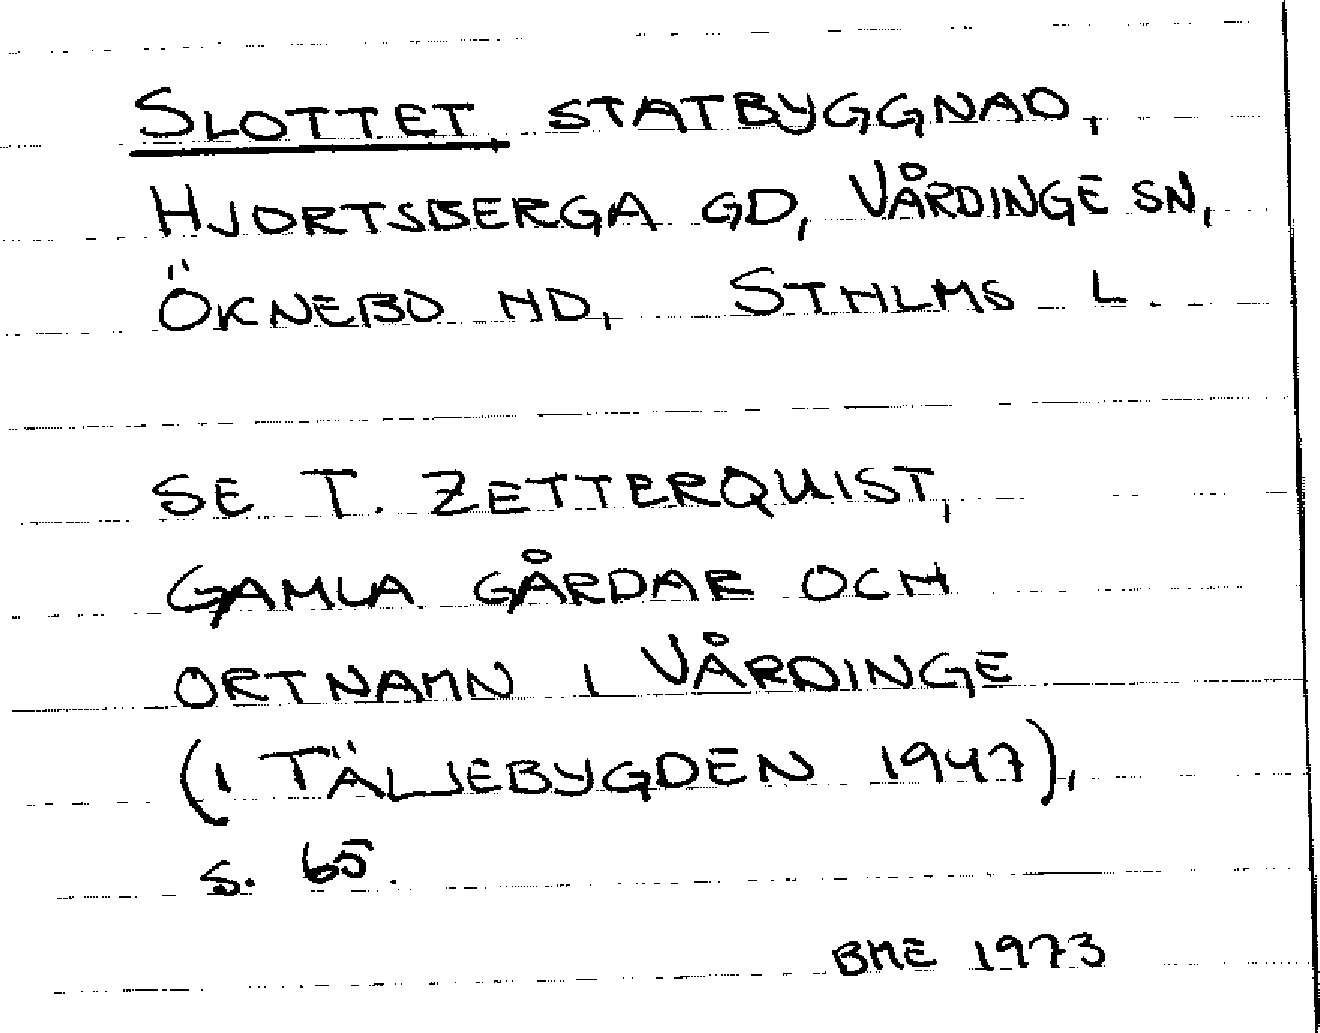 SLOTTET, STATBYGGNAD,
HJORTSBERGA GD, VÅRDINGE SN,
ÖKNEBO HD, STHLMS L.
SE T. ZETTERQUIST,
GAMLA GÅRDAR OCH
ORTNAMN I VÅRDINGE
(I TÄLJEBYGDEN 1947),
S. 65.
BME 1973